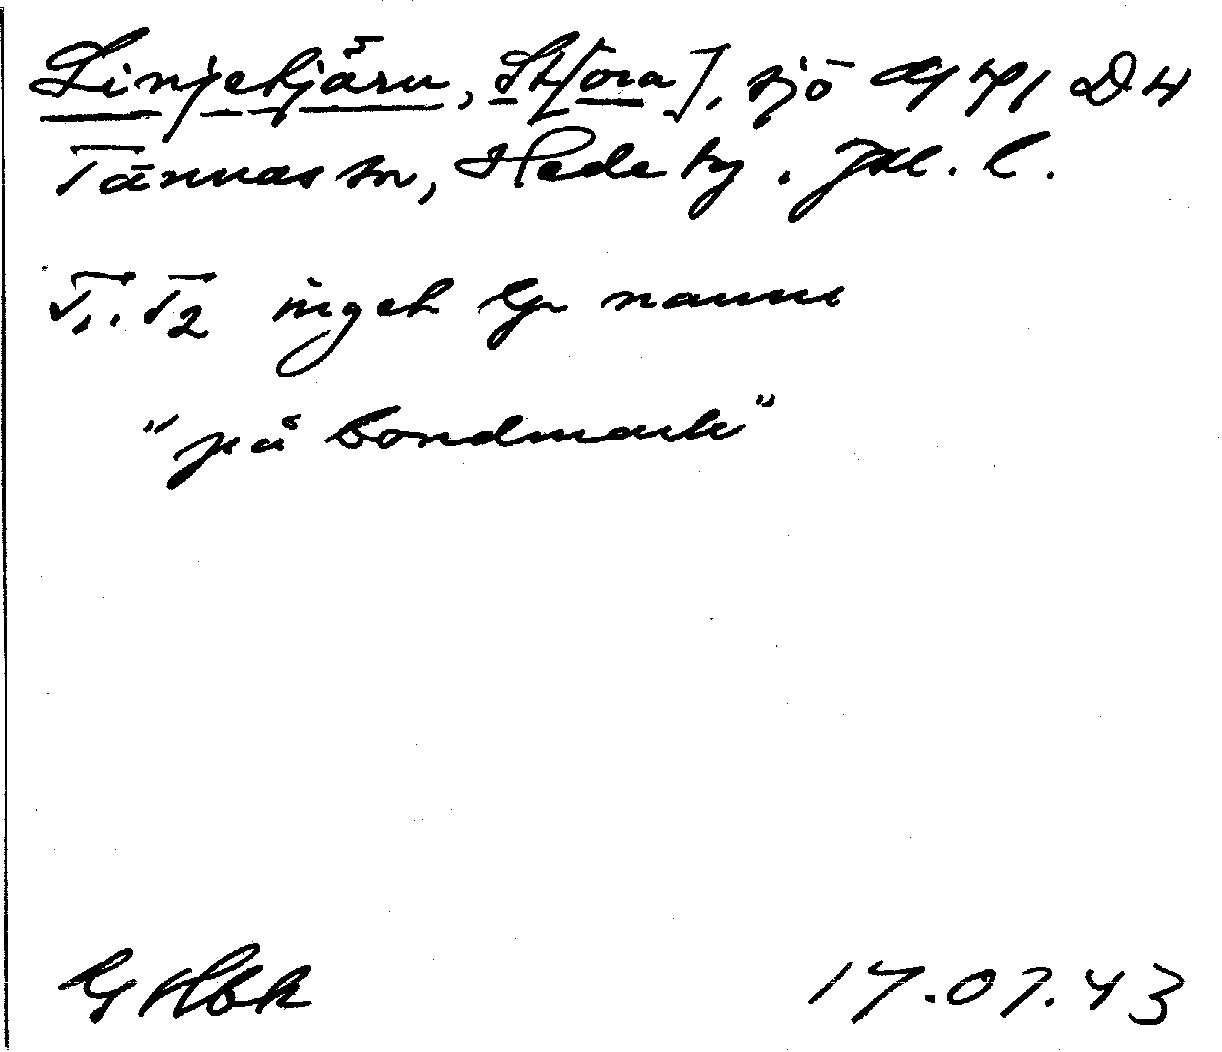 Linjetjärn, St[ora], sjö Gg 4f1 D4
Tännäs sn, Hede tg. Jtl. l.
T1. T2 inget namn
"på bondmark"
G Hbk 17.07.43